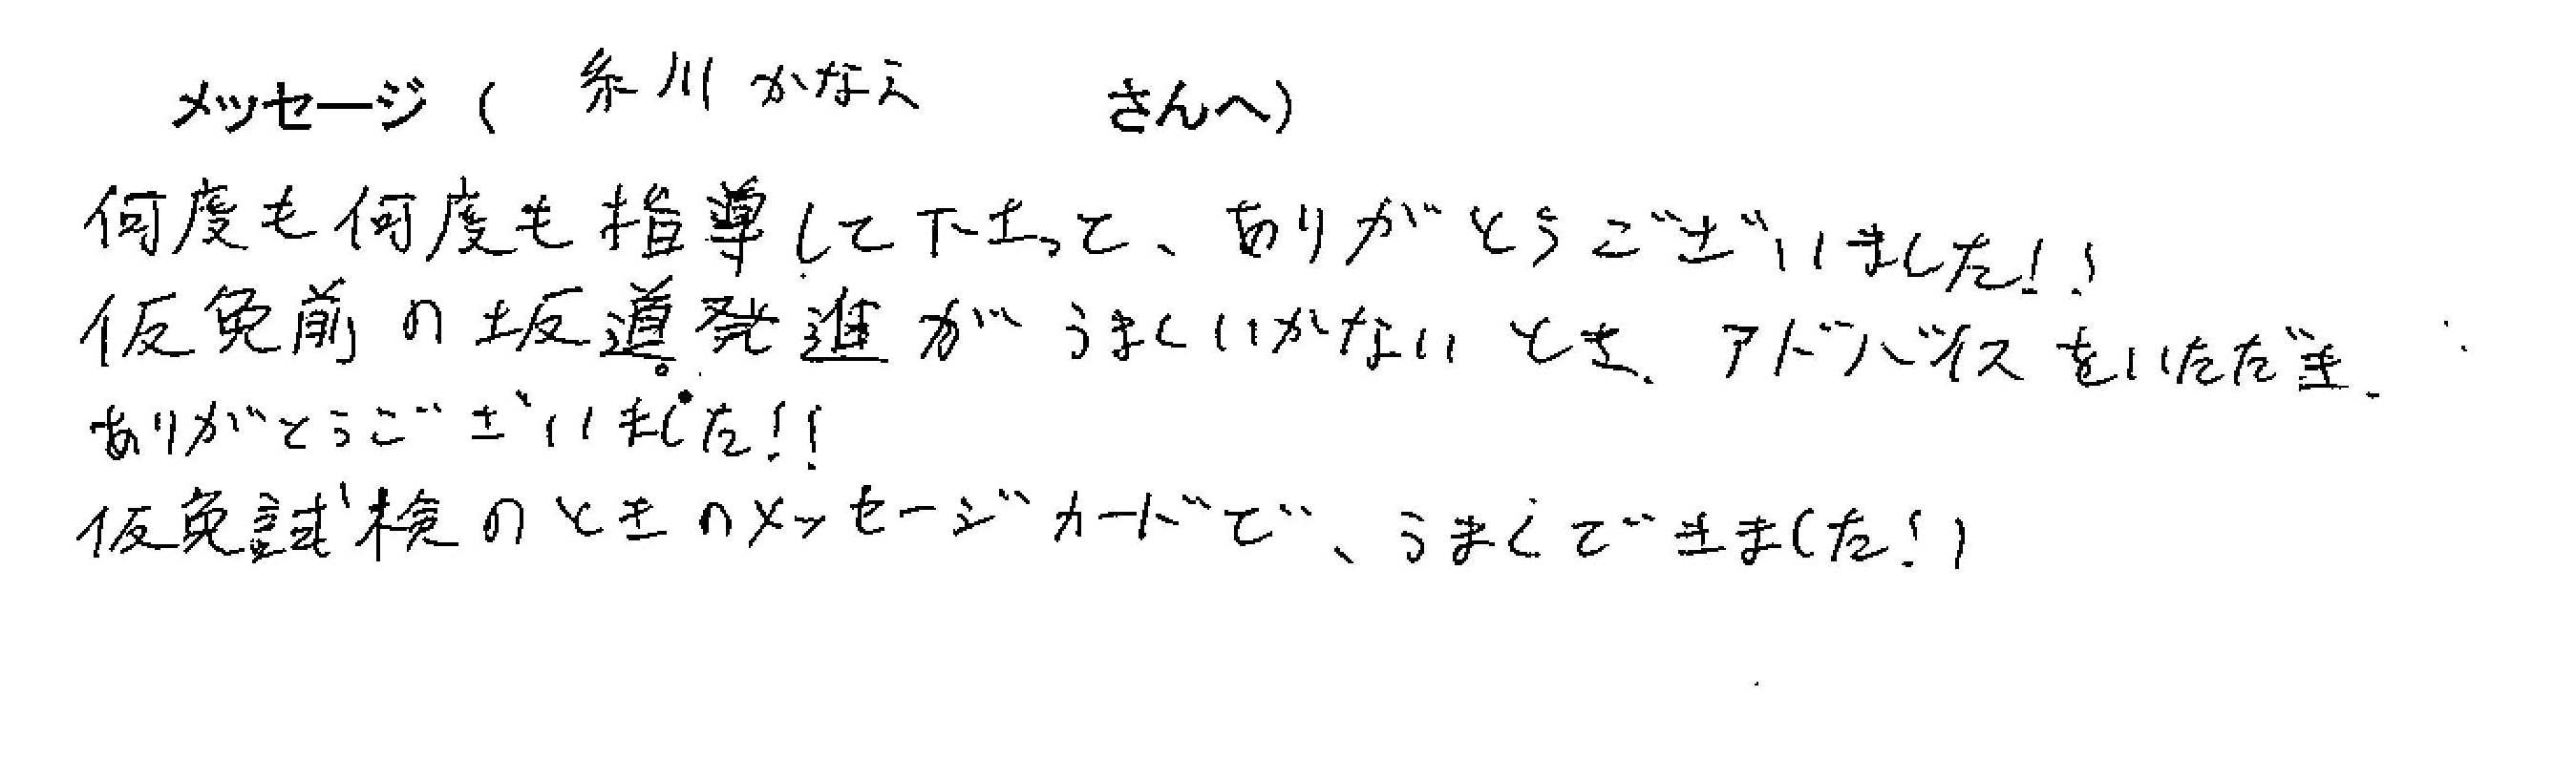 メッセージ（ 糸川 かなえ さんへ）
何度も何度も指導して下さって、ありがとうございました！！
仮免前の坂道発進がうまくいかないとき、アドバイスをいただき、
ありがとうございました！！
仮免試検のときのメッセージカードで、うまくできました！！